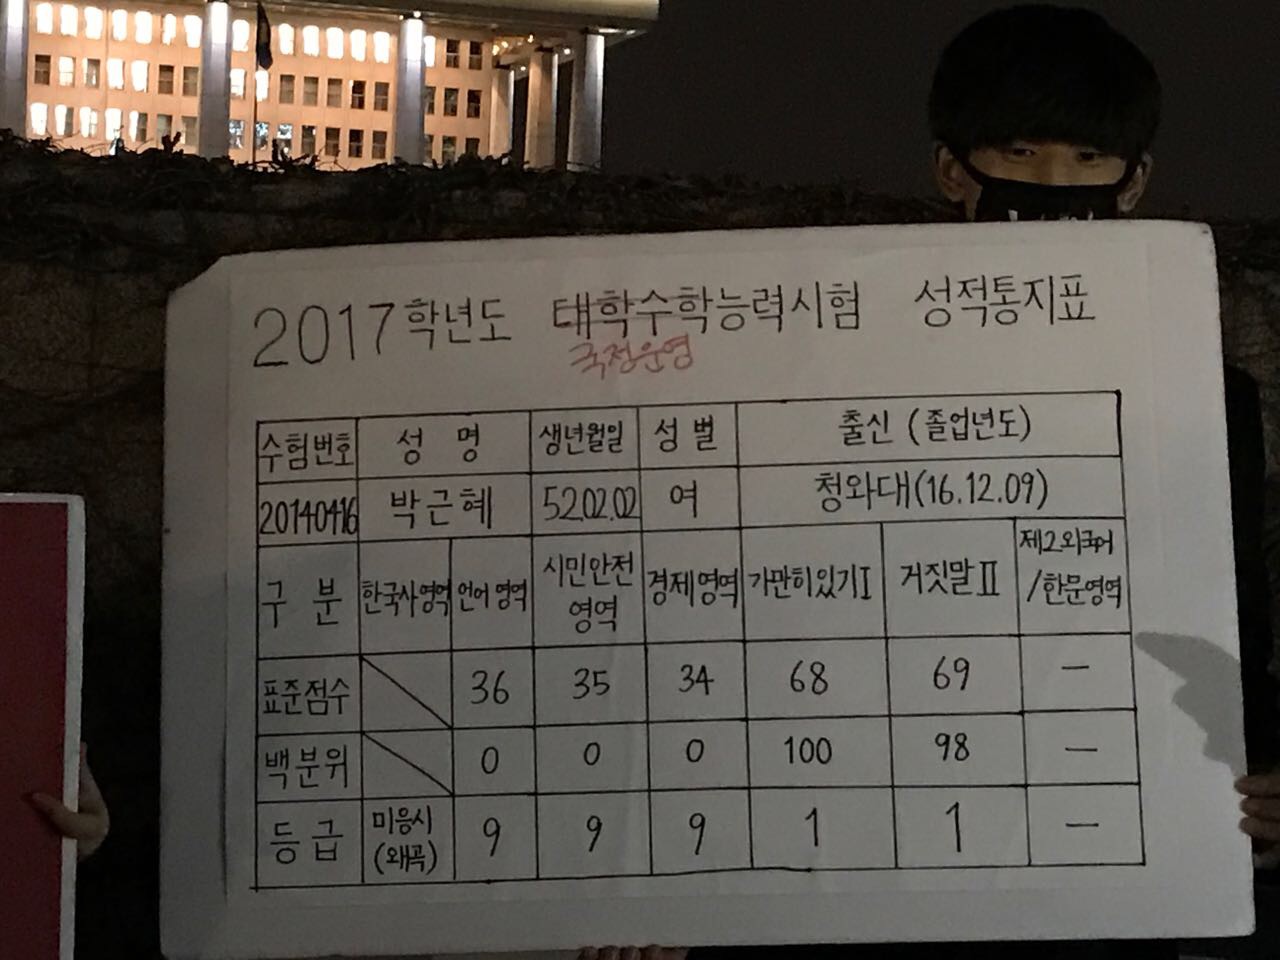 2017학년도 대학수학능력시험 성적통지표
국정운영
수험번호 성명 생년월일 성별 출신 (졸업년도)
20140416 박근혜 52.02.02 여 청와대(16.12.09)
구분 한국사영역 언어영역 시민안전영역 경제영역 가만히있기I 거짓말II 제2외국어/한문영역
표준점수 36 35 34 68 69 —
백분위 0 0 0 100 98 —
등급 미응시(왜곡) 9 9 9 1 1 —